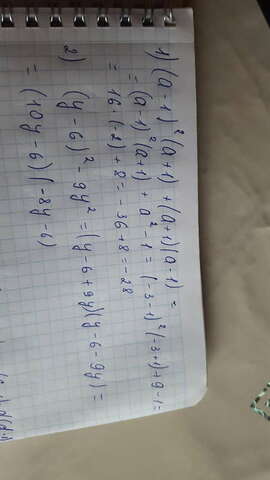 1) (a-1)²(a+1) + (a+1)(a-1) =
= (a-1)²(a+1) + a²-1 = (-3-1)²(-3+1)+9-1=
= 16·(-2)+8=-36+8=-28
2) (y-6)²-9y² = (y-6+9y)(y-6-9y) =
= (10y-6)(-8y-6)